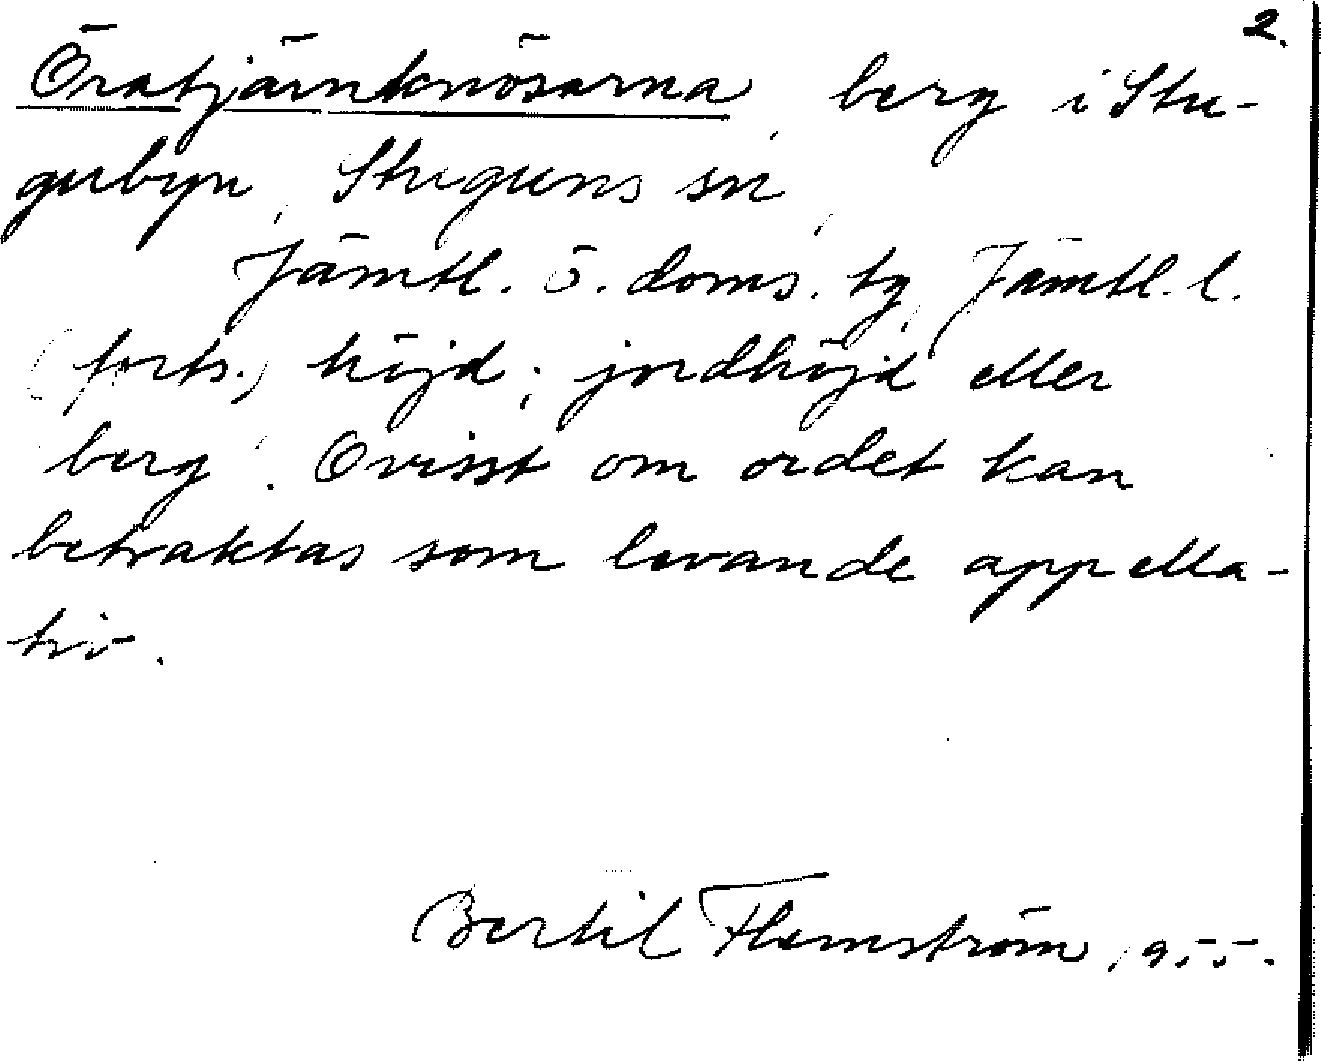 2.
Öratjärnknösarna, berg i Stu-
gubyn, Stuguns sn,
Jämtl. ö. doms. tg, Jämtl. l.
(forts.) höjd; jordhöjd eller
berg'. Ovisst om ordet kan
betraktas som levande appella-
tiv.
Bertil Flemström 1955.